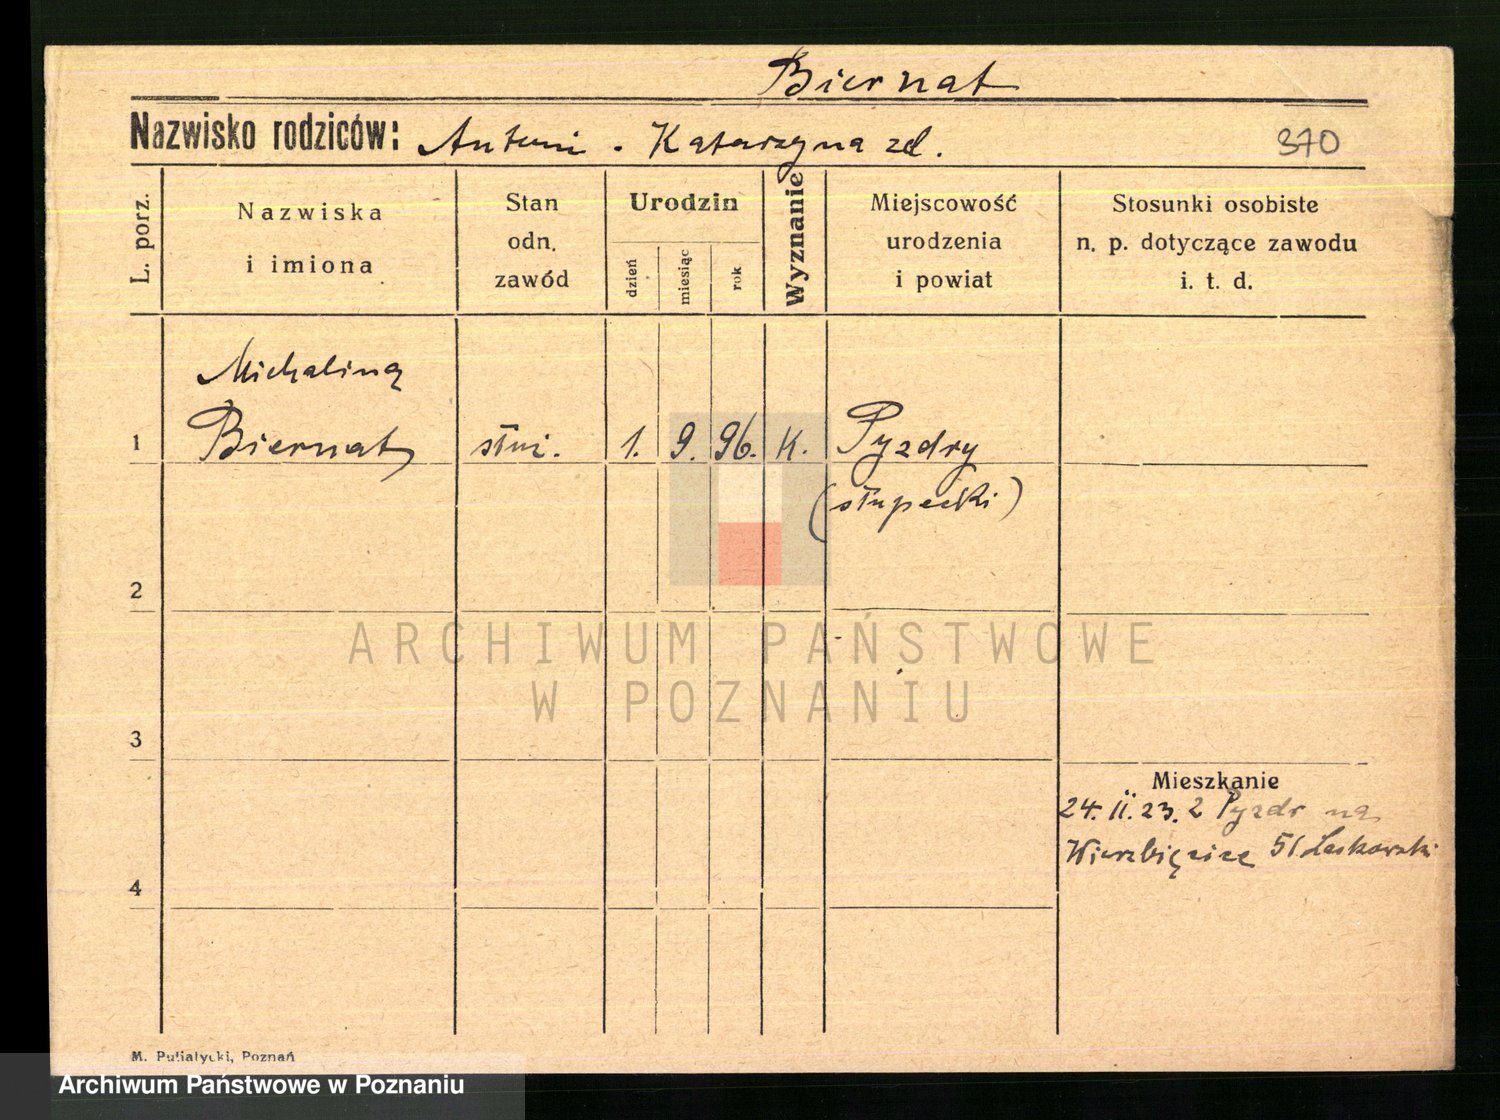 Biernat
Nazwisko rodziców: Antoni - Katarzyna zd. 370
L. porz.
Nazwiska
i imiona
Stan
odn.
zawód
Urodzin
dzień
miesiąc
rok
Wyznanie
Miejscowość
urodzenia
i powiat
Stosunki osobiste
n. p. dotyczące zawodu
i. t. d.
Michalina
1 Biernat służ. 1. 9. 96. K. Pyzdry
(słupecki)
2
ARCHIWUM PAŃSTWOWE
W POZNANIU
3
Mieszkanie
24. II. 23. z Pyzdr na
Wierzbięcice 51 Laskowski
4
M. Putiatycki, Poznań
Archiwum Państwowe w Poznaniu